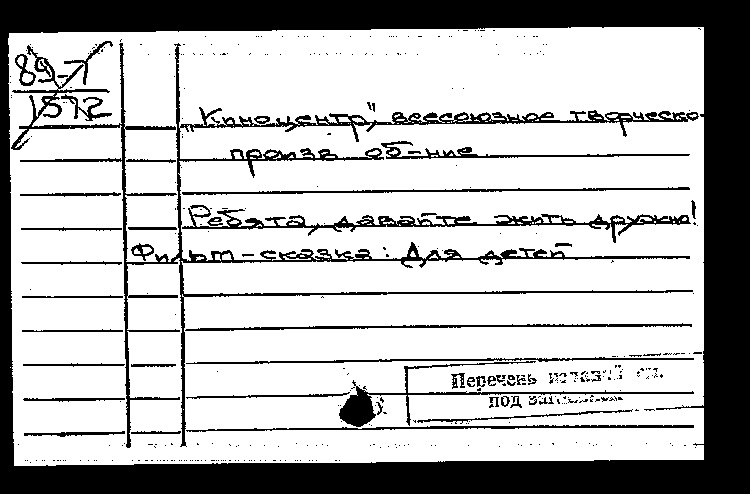 89-7
1572
„Киноцентр", всесоюзное творческо-
произв об-ние
Ребята, давайте жить дружно!
Фильм-сказка: Для детей
Перечень изданий см.
под